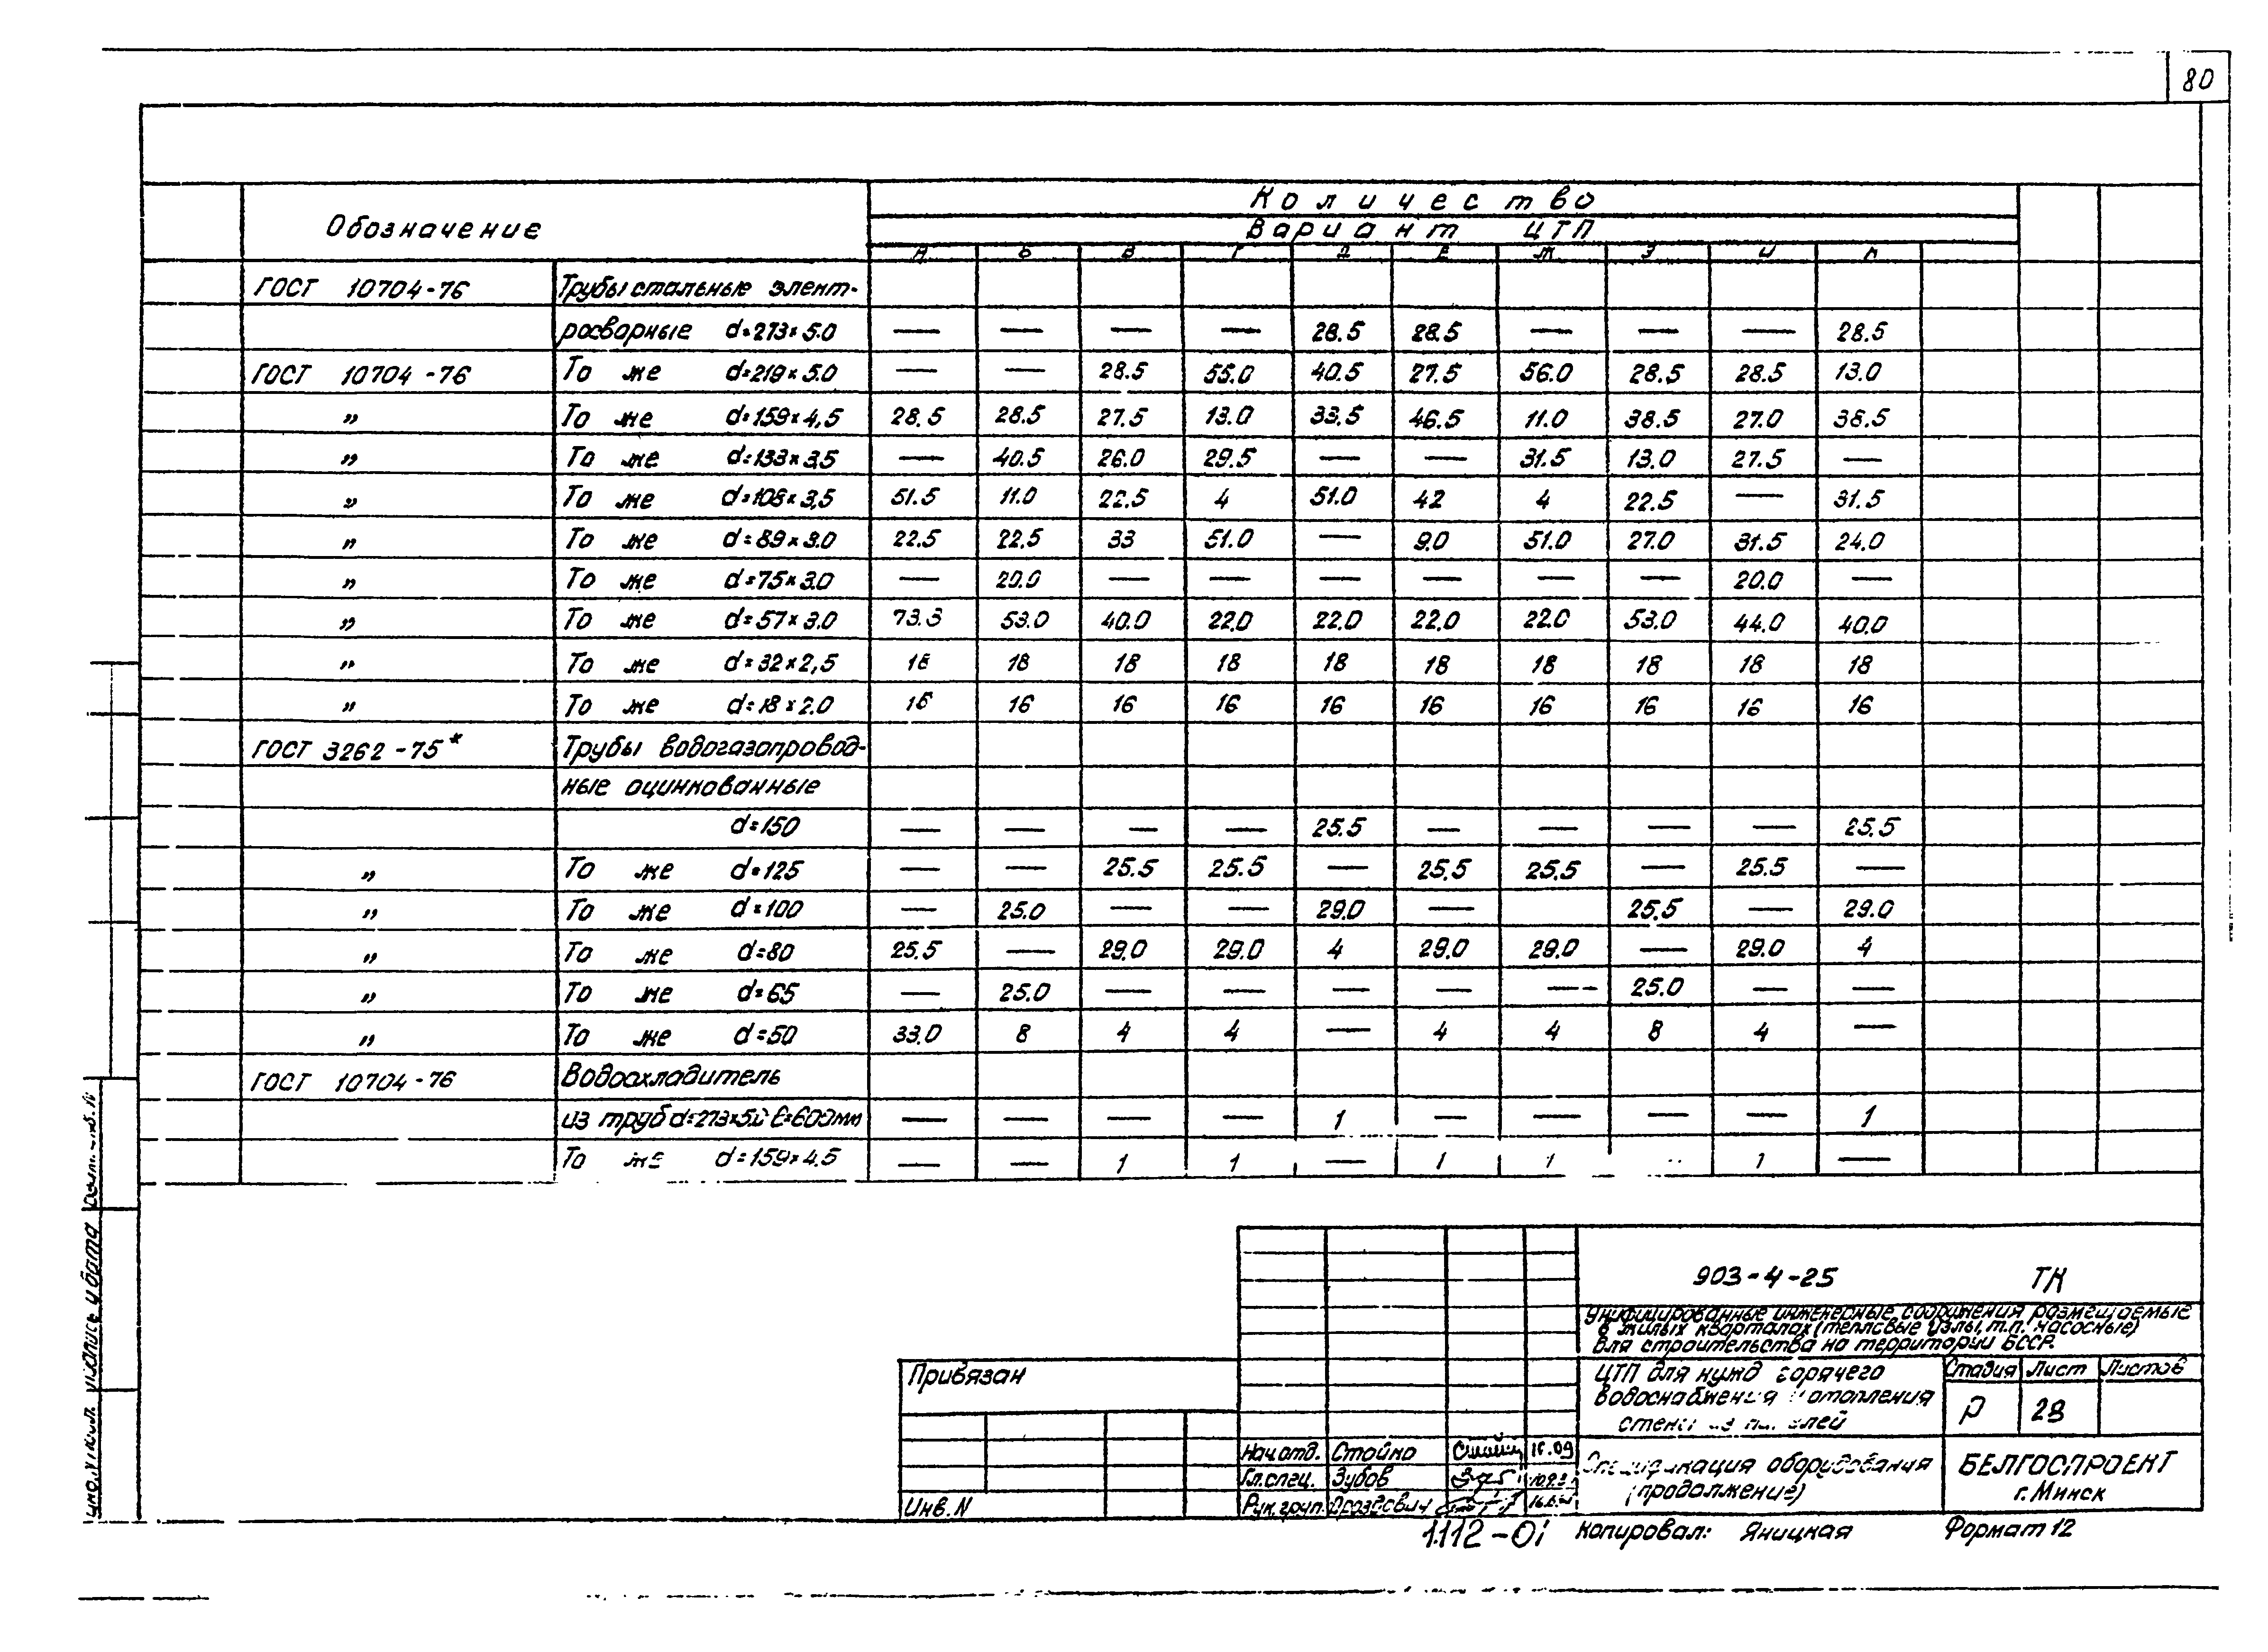 80
Обозначение
Количество
Вариант ЦТП
А Б В Г Д Е Ж З И К
ГОСТ 10704-76 Трубы стальные элект-
росварные d=273×5.0 — — — — 28.5 28.5 — — — 28.5
ГОСТ 10704-76 То же d=219×5.0 — — 28.5 55.0 40.5 27.5 56.0 28.5 28.5 13.0
" То же d=159×4,5 28.5 28.5 27.5 13.0 33.5 46.5 11.0 38.5 27.0 38.5
" То же d=133×3,5 — 40.5 26.0 29.5 — — 31.5 13.0 27.5 —
" То же d=108×3,5 51.5 11.0 22.5 4 51.0 42 4 22.5 — 31.5
" То же d=89×3.0 22.5 22.5 33 51.0 — 9.0 51.0 27.0 31.5 24.0
" То же d=75×3.0 — 20.0 — — — — — — 20.0 —
" То же d=57×3.0 73.5 53.0 40.0 22.0 22.0 22.0 22.0 53.0 44.0 40.0
" То же d=32×2,5 18 18 18 18 18 18 18 18 18 18
" То же d=18×2.0 16 16 16 16 16 16 16 16 16 16
ГОСТ 3262-75* Трубы водогазопровод-
ные оцинкованные
d=150 — — — — 25.5 — — — — 25.5
" То же d=125 — — 25.5 25.5 — 25.5 25.5 — 25.5 —
" То же d=100 — 25.0 — — 29.0 — 25.5 — 29.0
" То же d=80 25.5 — 29.0 29.0 4 29.0 29.0 — 29.0 4
" То же d=65 — 25.0 — — — — — 25.0 — —
" То же d=50 33.0 8 4 4 — 4 4 8 4 —
ГОСТ 10704-76 Водоохладитель
из труб d=273×5.0 ℓ=600мм — — — — 1 — — — — 1
То же d=159×4.5 — — 1 1 — 1 1 1 —
903-4-25 ТК
Унифицированные инженерные сооружения размещаемые
в жилых кварталах (тепловые узлы, т.п. насосные)
для строительства на территории БССР.
Привязан
ЦТП для нужд горячего
водоснабжения и отопления
стены из панелей
Стадия Лист Листов
Р 28
Нач.отд. Стойко
Гл.спец. Зубов
Рук.груп. Дроздович
Спецификация оборудования
(продолжение)
БЕЛГОСПРОЕКТ
г. Минск
Инв.N
1112-01 Копировал: Яницкая Формат 12